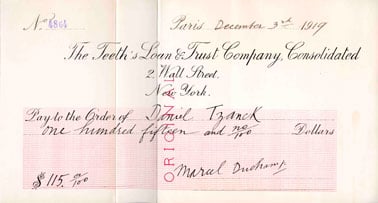 No 4864 Paris December 3rd 1919
The Teeth's Loan & Trust Company, Consolidated
2 Wall Street.
New York.
Pay to the Order of Daniel Tzanck
one hundred fifteen and no/100 Dollars
$ 115. 00/100
Marcel Duchamp
ORIGINAL